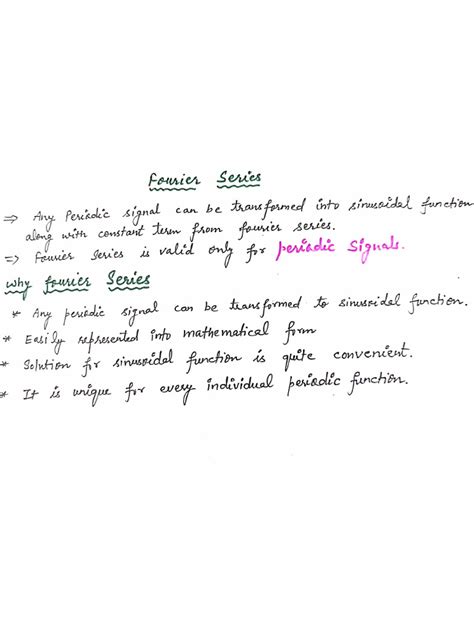 Fourier Series
⇒ Any Periodic signal can be transformed into sinusoidal function
along with constant term from fourier series.
⇒ Fourier Series is valid only for periodic Signals.
Why fourier Series
* Any periodic signal can be transformed to sinusoidal function.
* Easily represented into mathematical form
* Solution for sinusoidal function is quite convenient.
* It is unique for every individual periodic function.